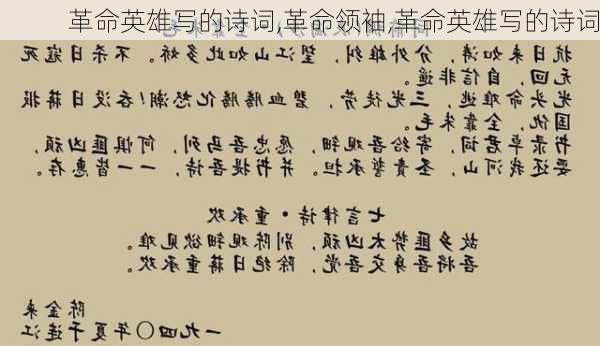 革命英雄写的诗词,革命领袖,革命英雄写的诗词
抗日来如涛，分外雄烈，望江山如此多娇。不杀日寇死
无回，自信非遥。
光头命难逃，三光徒劳，碧血腾腾化怒潮！吞没日蒋报
国仇，全靠朱毛。
书录卓君词，寄给吾观钿，愿忠吾马列，何惧匪凶顽，
要还我河山，圣责誓承担。并书提吾诗，一一皆惠存。
七言律诗·重承欢
故乡匪势太凶顽，别陈观钿欲见难。
吾将吾身交吾党，除绝日蒋重承欢。
陈金来
一九四〇年夏于连江